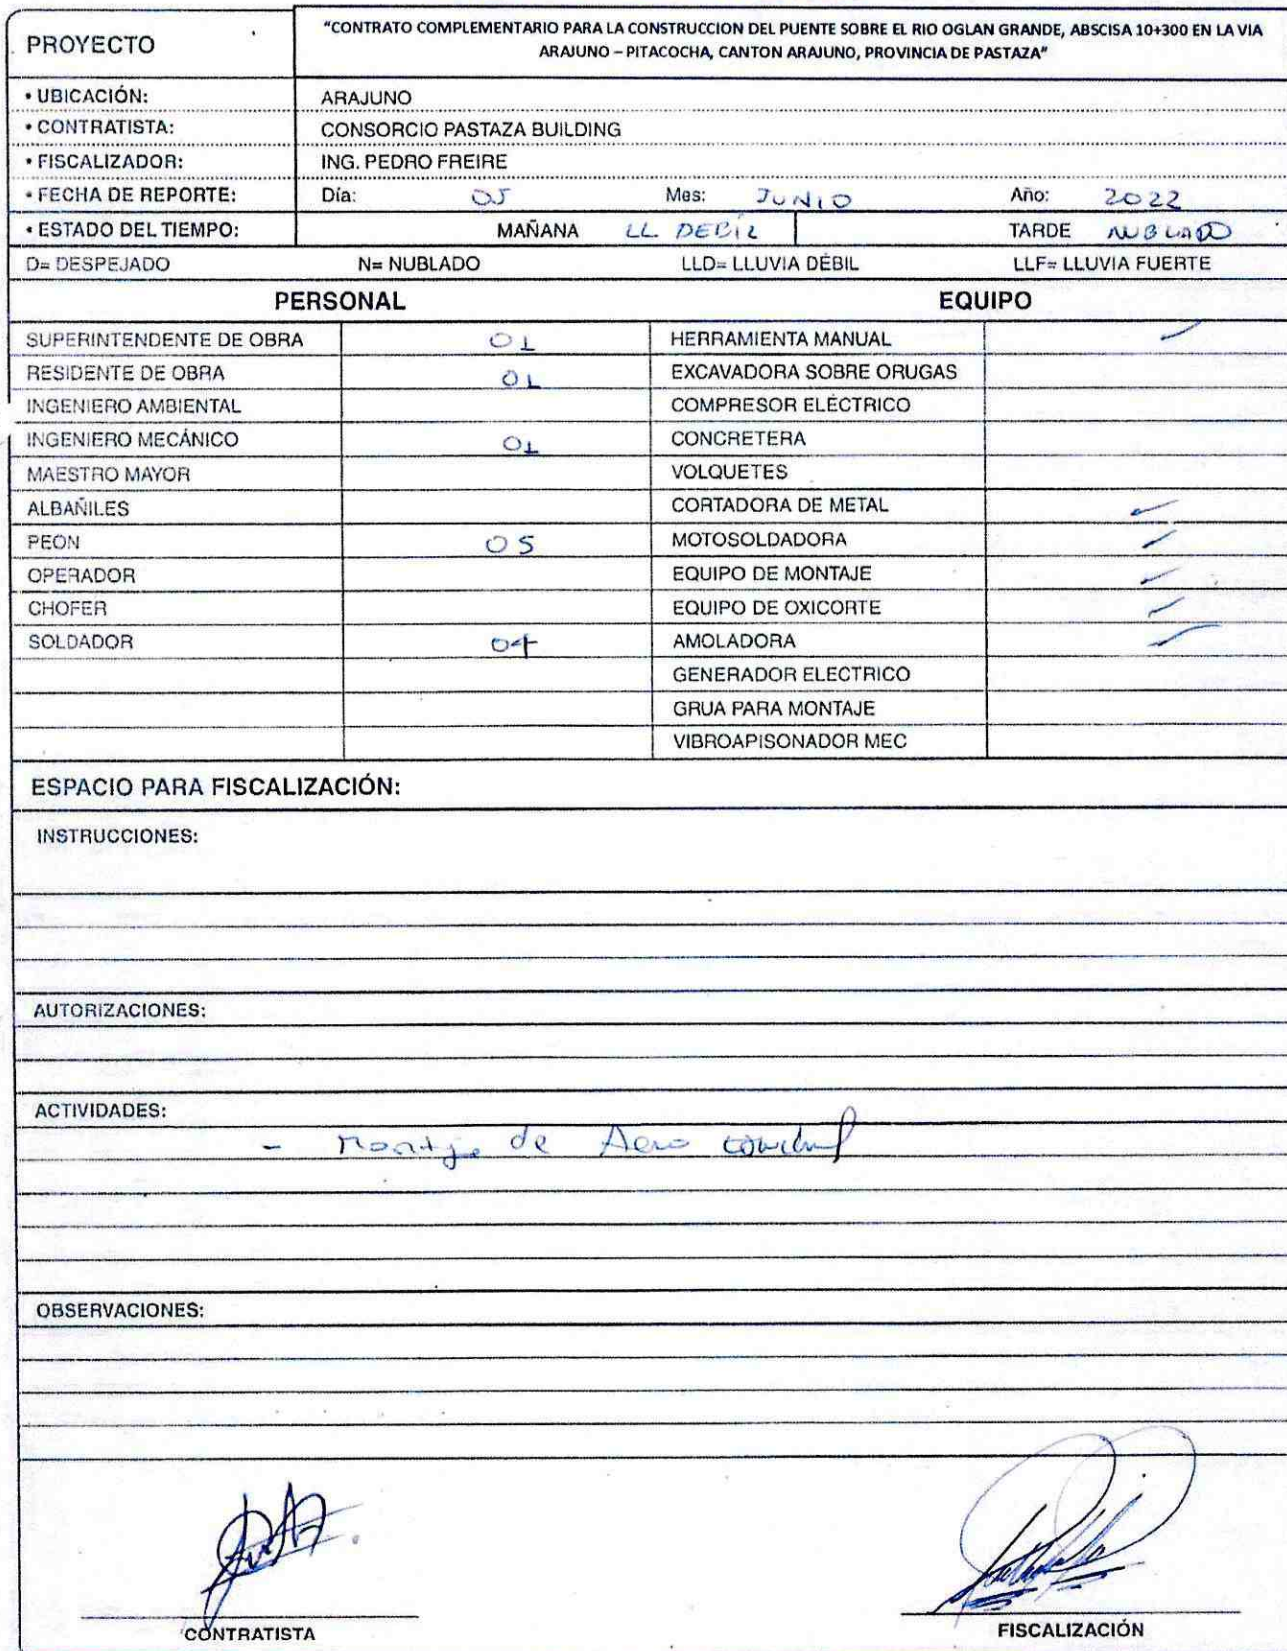 PROYECTO
“CONTRATO COMPLEMENTARIO PARA LA CONSTRUCCION DEL PUENTE SOBRE EL RIO OGLAN GRANDE, ABSCISA 10+300 EN LA VIA
ARAJUNO – PITACOCHA, CANTON ARAJUNO, PROVINCIA DE PASTAZA”
• UBICACIÓN: ARAJUNO
• CONTRATISTA: CONSORCIO PASTAZA BUILDING
• FISCALIZADOR: ING. PEDRO FREIRE
• FECHA DE REPORTE: Día: 05 Mes: JUNIO Año: 2022
• ESTADO DEL TIEMPO: MAÑANA LL DEBIL TARDE NUBLADO
D= DESPEJADO N= NUBLADO LLD= LLUVIA DÉBIL LLF= LLUVIA FUERTE
PERSONAL EQUIPO
SUPERINTENDENTE DE OBRA 01 HERRAMIENTA MANUAL ✓
RESIDENTE DE OBRA 01 EXCAVADORA SOBRE ORUGAS
INGENIERO AMBIENTAL COMPRESOR ELÉCTRICO
INGENIERO MECÁNICO 01 CONCRETERA
MAESTRO MAYOR VOLQUETES
ALBAÑILES CORTADORA DE METAL ✓
PEON 05 MOTOSOLDADORA ✓
OPERADOR EQUIPO DE MONTAJE ✓
CHOFER EQUIPO DE OXICORTE ✓
SOLDADOR 04 AMOLADORA ✓
GENERADOR ELECTRICO
GRUA PARA MONTAJE
VIBROAPISONADOR MEC
ESPACIO PARA FISCALIZACIÓN:
INSTRUCCIONES:
AUTORIZACIONES:
ACTIVIDADES:
- Montaje de
OBSERVACIONES:
CONTRATISTA FISCALIZACIÓN